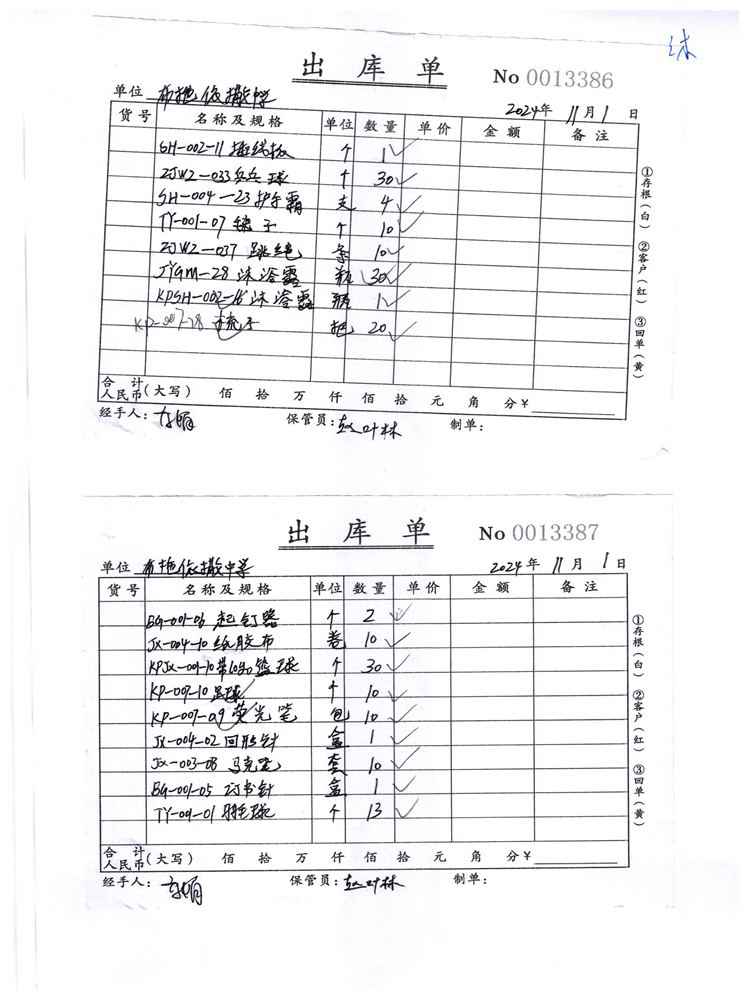 出库单 No 0013386
单位 布拖依撒中学 2024年 11月 1日
货号 名称及规格 单位 数量 单价 金额 备注
SH-002-11 插线板 个 1
ZJWZ-033 乒乓球 个 30
SH-004-23 护手霜 支 4
TY-001-07 毽子 个 10
ZJWZ-037 跳绳 条 10
JYGM-28 沐浴露 瓶 30
KPSH-002-16 沐浴露 瓶 1
KP-007-28 梳子 把 20
①存根(白) ②客户(红) ③回单(黄)
合计人民币(大写) 佰 拾 万 仟 佰 拾 元 角 分¥
经手人: 保管员:赵叶林 制单:
出库单 No 0013387
单位 布拖依撒中学 2024年 11月 1日
货号 名称及规格 单位 数量 单价 金额 备注
BG-001-06 起钉器 个 2
JX-004-10 纸胶布 卷 10
篮球 个 30
KP-009-10 足球 个 10
KP-007-09 荧光笔 包 10
JX-004-02 回形针 盒 1
JX-003-08 马克笔 套 10
BG-001-05 订书针 盒 1
TY-09-01 个 13
①存根(白) ②客户(红) ③回单(黄)
合计人民币(大写) 佰 拾 万 仟 佰 拾 元 角 分¥
经手人: 保管员:赵叶林 制单: